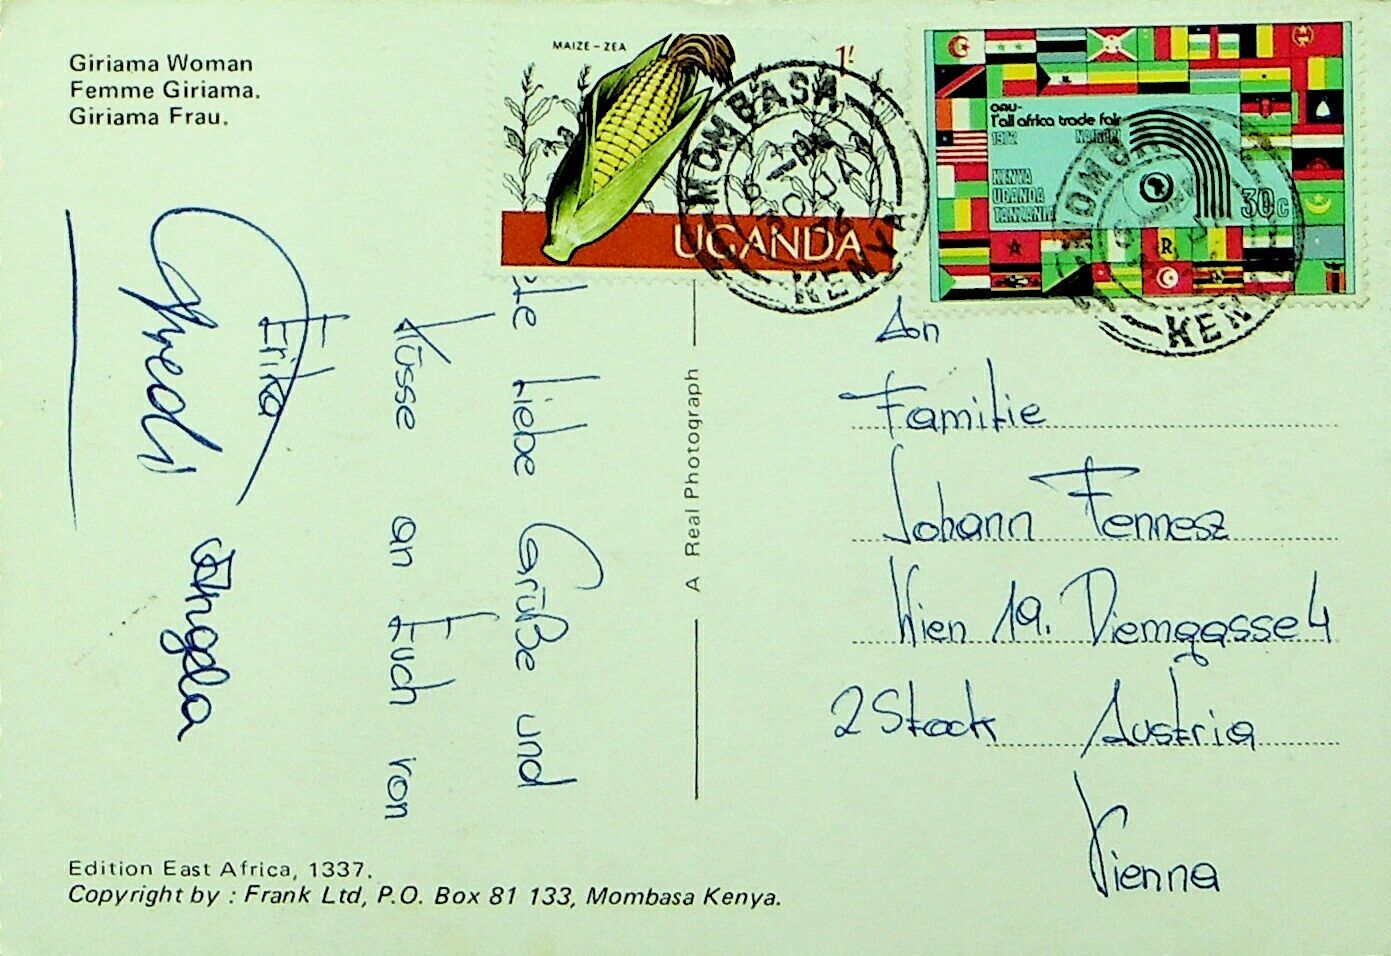 Giriama Woman
Femme Giriama.
Giriama Frau.
MAIZE - ZEA
1/-
UGANDA
MOMBASA
KENYA
OAU-
1'all africa trade fair
1972 NAIROBI
KENYA
UGANDA
TANZANIA
30c
MOMBASA
KENYA
Liebe Grüße und
Küsse an Euch von
Erika
Angela
A Real Photograph
An
Familie
Johann Fennesz
Wien 19. Diemgasse 4
2 Stock Austria
Vienna
Edition East Africa, 1337.
Copyright by : Frank Ltd, P.O. Box 81 133, Mombasa Kenya.